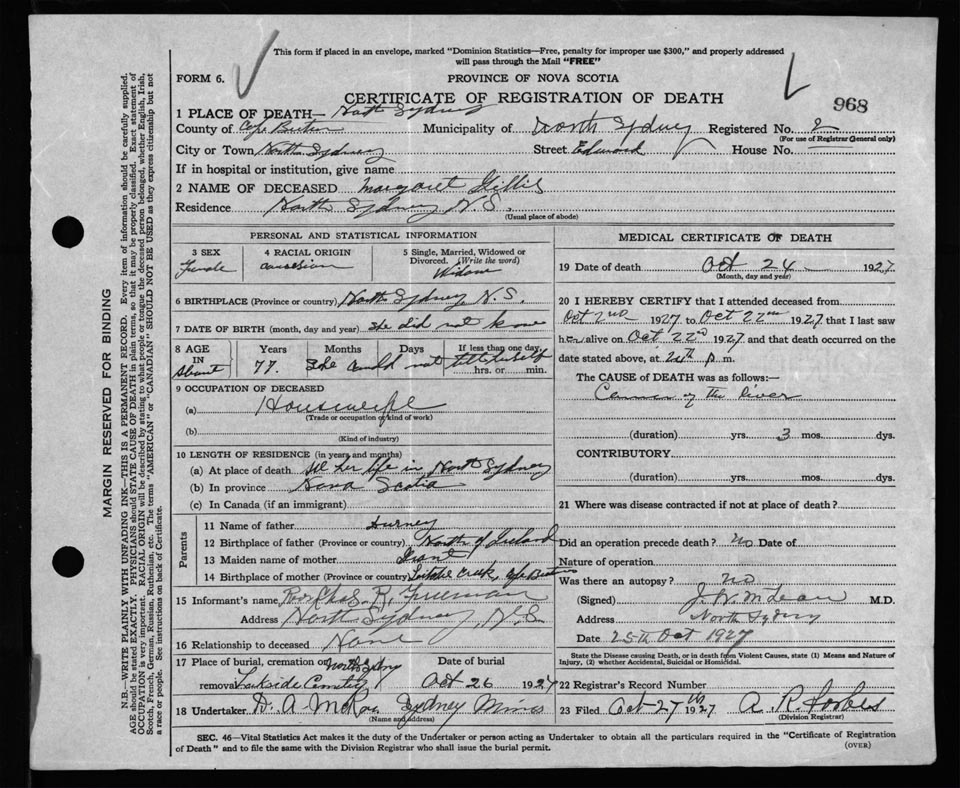 This form if placed in an envelope, marked "Dominion Statistics—Free, penalty for improper use $300," and properly addressed
will pass through the Mail "FREE"
FORM 6.
PROVINCE OF NOVA SCOTIA
CERTIFICATE OF REGISTRATION OF DEATH
968
1 PLACE OF DEATH— North Sydney
County of Cape Breton Municipality of North Sydney Registered No. 2
(For use of Registrar General only)
City or Town North Sydney Street Edward House No.
If in hospital or institution, give name
2 NAME OF DECEASED Margaret Gillis
Residence North Sydney, N.S.
(Usual place of abode)
PERSONAL AND STATISTICAL INFORMATION
3 SEX
Female
4 RACIAL ORIGIN
5 Single, Married, Widowed or
Divorced. (Write the word)
Widow
6 BIRTHPLACE (Province or country) North Sydney, N.S.
7 DATE OF BIRTH (month, day and year) She did not know
8 AGE
IN
About
Years
77.
Months
Days
She could not tell herself
If less than one day,
hrs. or min.
9 OCCUPATION OF DECEASED
(a) Housewife
(Trade or occupation or kind of work)
(b)
(Kind of industry)
10 LENGTH OF RESIDENCE (in years and months)
(a) At place of death All her life in North Sydney
(b) In province Nova Scotia
(c) In Canada (if an immigrant)
Parents
11 Name of father
12 Birthplace of father (Province or country) North of Ireland
13 Maiden name of mother Grant
14 Birthplace of mother (Province or country) Creek, Cape Breton
15 Informant's name Chas. R. Freeman
Address North Sydney, N.S.
16 Relationship to deceased None
17 Place of burial, cremation or North Sydney
removal Lakeside Cemetery
Date of burial
Oct 26 1927
18 Undertaker D. A. McRae Sydney Mines
(Name and address)
MEDICAL CERTIFICATE OF DEATH
19 Date of death Oct 24 1927
(Month, day and year)
20 I HEREBY CERTIFY that I attended deceased from
Oct 2nd 1927 to Oct 22nd 1927 that I last saw
her alive on Oct 22nd 1927 and that death occurred on the
date stated above, at 24th p m.
The CAUSE of DEATH was as follows:—
Cancer of the liver
(duration) yrs. 3 mos. dys.
CONTRIBUTORY
(duration) yrs. mos. dys.
21 Where was disease contracted if not at place of death?
Did an operation precede death? no Date of
Nature of operation
Was there an autopsy? no
(Signed) J. W. McLean M.D.
Address North Sydney
Date 25th Oct 1927
State the Disease causing Death, or in death from Violent Causes, state (1) Means and Nature of
Injury, (2) whether Accidental, Suicidal or Homicidal.
22 Registrar's Record Number
23 Filed Oct 27th 1927 A. R. Forbes
(Division Registrar)
SEC. 46—Vital Statistics Act makes it the duty of the Undertaker or person acting as Undertaker to obtain all the particulars required in the "Certificate of Registration
of Death" and to file the same with the Division Registrar who shall issue the burial permit.
(OVER)
MARGIN RESERVED FOR BINDING
N.B.—WRITE PLAINLY WITH UNFADING INK—THIS IS A PERMANENT RECORD. Every item of information should be carefully supplied.
AGE should be stated EXACTLY. PHYSICIANS should STATE CAUSE OF DEATH in plain terms, so that it may be properly classified. Exact statement of
OCCUPATION is very important. RACIAL ORIGIN will be described by stating to what people or tongue the deceased person belonged, whether English, Irish,
Scotch, French, German, Russian, Ruthenian, etc. The terms "AMERICAN" or "CANADIAN" SHOULD NOT BE USED as they express citizenship but not
a race or people. See instructions on back of Certificate.